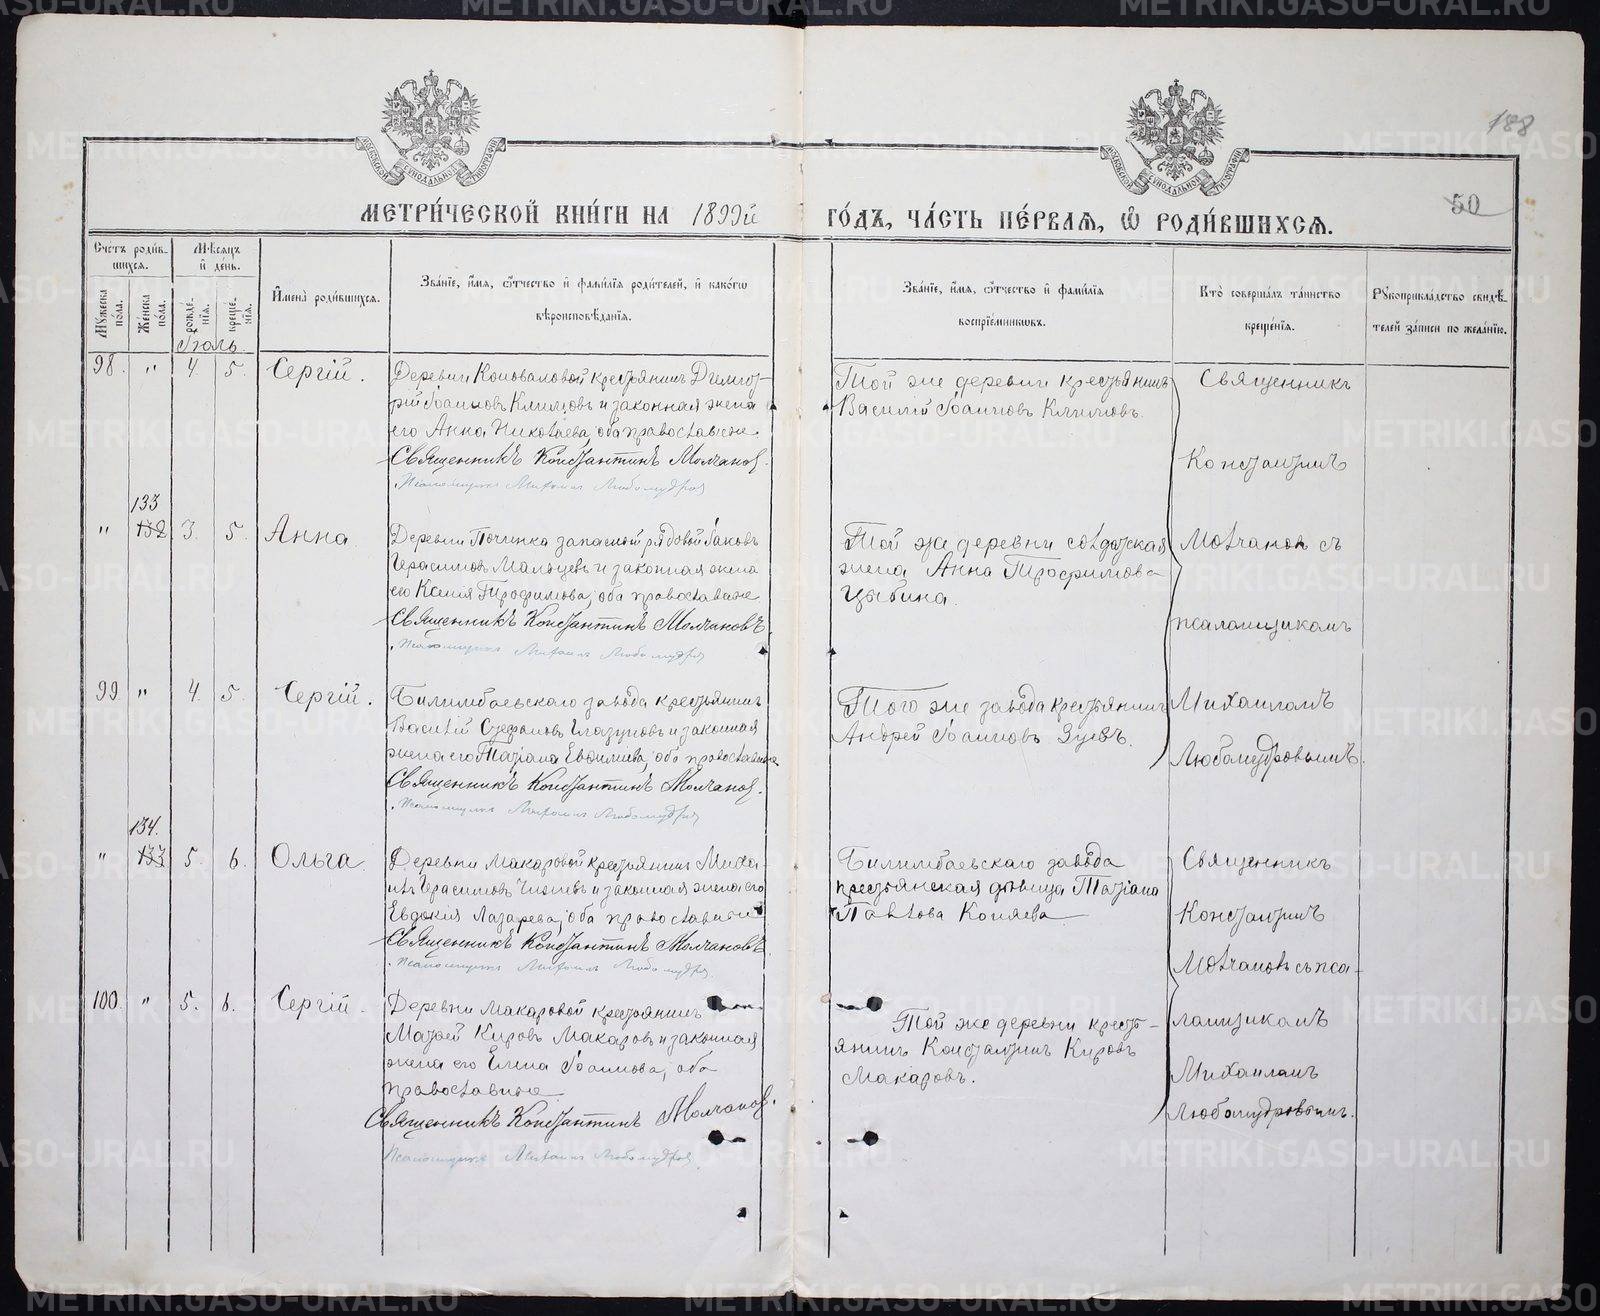 188
50
МЕТРИ́ЧЕСКОЙ КНИ́ГИ НА 1899й ГО́ДЪ, ЧА́СТЬ ПЕ́РВАЯ, Ѽ РОДИ́ВШИХСЯ.
Сче́тъ роди́в-
шихся.
Му́жеска
по́ла.
Же́нска
по́ла.
Мѣ́сяцъ
и҆ де́нь.
рожде́-
нїя.
креще́-
нїя.
И҆мена̀ роди́вшихся.
Зва́нїе, и҆́мя, ѻ҆́тчество и҆ фами́лїя роди́телей, и҆ како́гѡ
вѣроисповѣ́данїя.
Зва́нїе, и҆́мя, ѻ҆́тчество и҆ фами́лїя
воспрїе́мниковъ.
Кто̀ соверша́лъ та́инство
креще́нїя.
Рꙋкоприкла́дство свидѣ́-
телей за́писи по жела́нїю.
Іюль
98. " 4. 5. Сергій.
Деревни Коноваловой крестьянинъ Димит-
рій Іоанновъ Климовъ и законная жена
его Анна Николаева, оба православные.
Священникъ Константинъ Молчановъ.
Псаломщикъ Михаилъ Любомудровъ
Той же деревни крестьянинъ
Василій Іоанновъ Климовъ.
Священникъ
Константинъ
133
" 132 3. 5. Анна
Деревни Починка запасный рядовой Іаковъ
Герасимовъ Мальцевъ и законная жена
его Ксенія Трофимова, оба православные
Священникъ Константинъ Молчановъ.
Псаломщикъ Михаилъ Любомудровъ
Той же деревни солдатская
жена Анна Трофимова
Цыбина.
Молчановъ съ
псаломщикомъ
99. " 4. 5. Сергій.
Билимбаевскаго завода крестьянинъ
Василій Стефановъ Глазуновъ и законная
жена его Татіана Евфимиева, оба православные
Священникъ Константинъ Молчановъ.
Псаломщикъ Михаилъ Любомудровъ
Того же завода крестьянинъ
Андрей Іоанновъ Зуевъ.
Михаиломъ
Любомудровымъ.
134.
" 133 5. 6. Ольга
Деревни Макаровой крестьянинъ Миха-
илъ Герасимовъ и законная жена его
Евдокія Лазарева, оба православные
Священникъ Константинъ Молчановъ.
Псаломщикъ Михаилъ Любомудровъ.
Билимбаевскаго завода
крестьянская дѣвица Татіана
Павлова Коняева
Священникъ
Константинъ
Молчановъ съ пса-
100. " 5. 6. Сергій.
Деревни Макаровой крестьянинъ
Матвей Кировъ Макаровъ и законная
жена его Елена Іоаннова, оба
православные
Священникъ Константинъ Молчановъ.
Псаломщикъ Михаилъ Любомудровъ
Той же деревни кресть-
янинъ Константинъ Кировъ
Макаровъ.
ломщикомъ
Михаиломъ
Любомудровымъ.